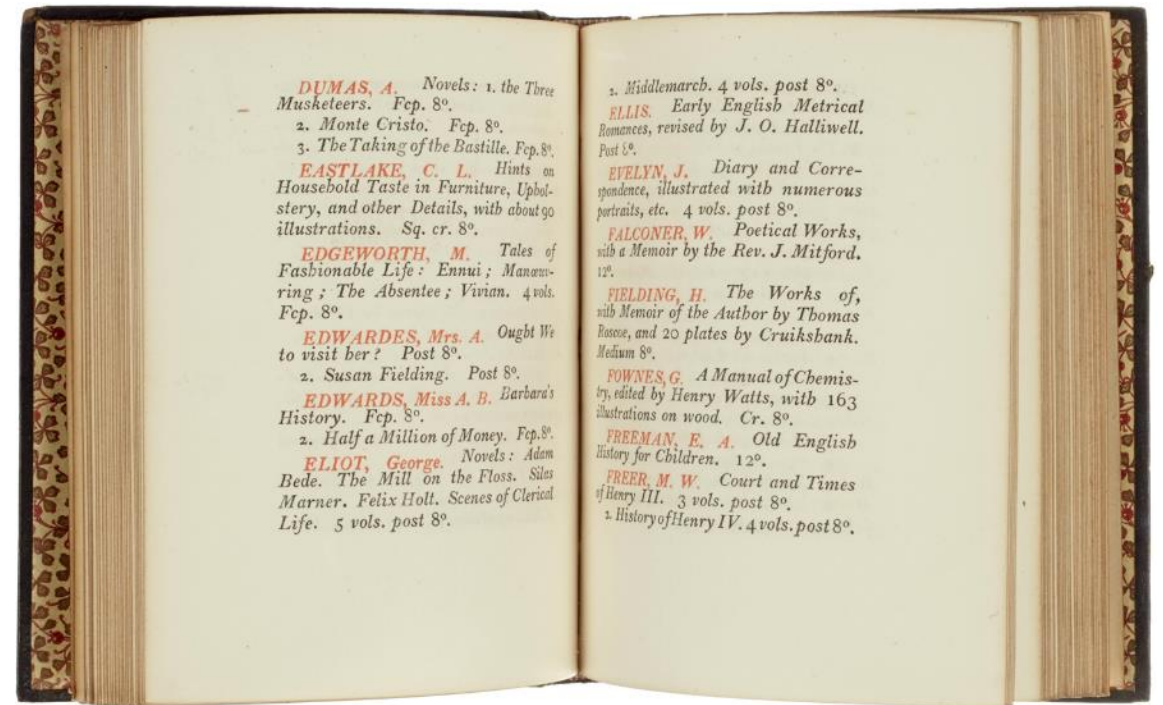 DUMAS, A. Novels: 1. the Three
Musketeers. Fcp. 8º.
2. Monte Cristo. Fcp. 8º.
3. The Taking of the Bastille. Fcp. 8º.
EASTLAKE, C. L. Hints on
Household Taste in Furniture, Uphol-
stery, and other Details, with about 90
illustrations. Sq. cr. 8º.
EDGEWORTH, M. Tales of
Fashionable Life: Ennui; Manœuv-
ring; The Absentee; Vivian. 4 vols.
Fcp. 8º.
EDWARDES, Mrs. A. Ought We
to visit her? Post 8º.
2. Susan Fielding. Post 8º.
EDWARDS, Miss A. B. Barbara's
History. Fcp. 8º.
2. Half a Million of Money. Fcp. 8º.
ELIOT, George. Novels: Adam
Bede. The Mill on the Floss. Silas
Marner. Felix Holt. Scenes of Clerical
Life. 5 vols. post 8º.
2. Middlemarch. 4 vols. post 8º.
ELLIS. Early English Metrical
Romances, revised by J. O. Halliwell.
Post 8º.
EVELYN, J. Diary and Corre-
spondence, illustrated with numerous
portraits, etc. 4 vols. post 8º.
FALCONER, W. Poetical Works,
with a Memoir by the Rev. J. Mitford.
12º.
FIELDING, H. The Works of,
with Memoir of the Author by Thomas
Roscoe, and 20 plates by Cruikshank.
Medium 8º.
FOWNES, G. A Manual of Chemis-
try, edited by Henry Watts, with 163
illustrations on wood. Cr. 8º.
FREEMAN, E. A. Old English
History for Children. 12º.
FREER, M. W. Court and Times
of Henry III. 3 vols. post 8º.
2. History of Henry IV. 4 vols. post 8º.